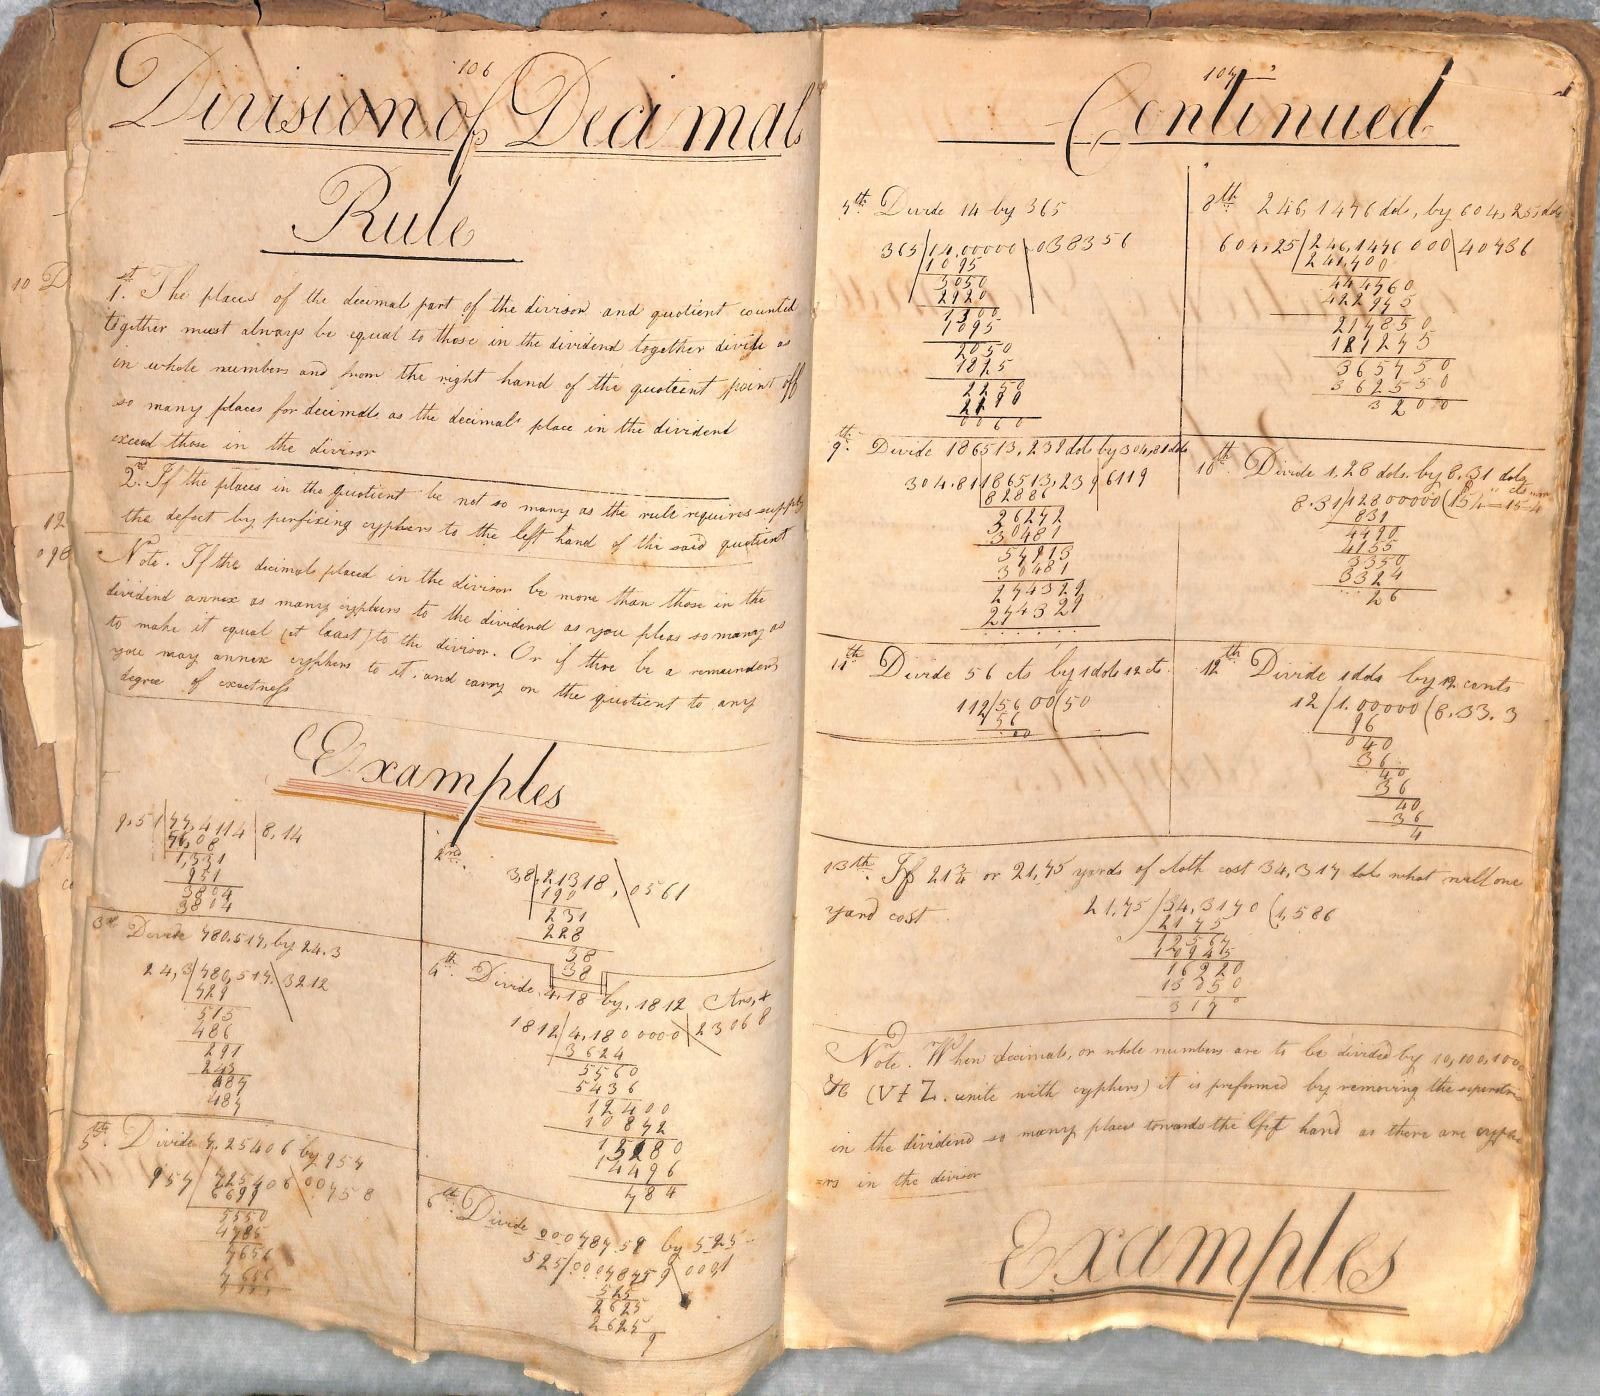 106
Division of Decimals
Rule
1st. The places of the decimal part of the divisor and quotient counted
together must always be equal to those in the dividend together divide as
in whole numbers and from the right hand of the quotient point off
so many places for decimals as the decimal place in the dividend
exceed those in the divisor
2nd. If the places in the quotient be not so many as the rule requires supply
the defect by prefixing cyphers to the left hand of the said quotient
Note. If the decimals placed in the divisor be more than those in the
dividend annex as many cyphers to the dividend as you pleas so many as
to make it equal (at least) to the divisor. Or if thre be a remainder
you may annex cyphers to it. and carry on the quotient to any
degree of exactness
Examples
9,51 | 77,4114 | 8,14
76,08
1,331
951
3804
3804
2nd.
3,8 | ,21318, \ ,0561
190
231
228
38
38
3rd Devide 780.517, by 24.3
24,3 | 780,517. \ 3212
729
515
486
291
243
487
487
4th. Divide. 4,18 by, 1812
1812 | 4,180 0000 \ 23068
3624
5560
5436
12400
10872
15280
14496
784
5th. Divide 7.25406 by 957
957 | 725406 \ 00758
6699
5550
4785
7656
7656
6th Divide 00078759 by 525
525 / 00078759
525
2625
2625
9
107
Continued
7th Devide 14 by 365
365 | 14,00000 \ .038356
1095
3050
2920
1300
1095
2050
1825
2250
2190
0060
8th. 246,1476 dols, by 604,25, dols
604.25 | 246,1476 000 \ 40736
241,700
444760
422975
217850
181275
365750
362550
3200
9th. Devide 186513,239 dols by 304,81 dols
304.81 | 186513,239 / 6119
82886
26272
30481
57913
30481
274329
274329
10th Devide 1,28 dols. by 8,31 dols
8.31 / 12800000 (154 = 15-4
831
4490
4155
3350
3324
26
11th Devide 56 cts by 1 dols 12 cts.
112 / 56 00 (50
56
00
12th Devide 1 dols by 12 cents
12 / 1.00000 (8.33.3
96
040
36
40
36
40
36
4
13th. If 21¾ or 21,75 yards of cloth cost 34,317 dols what will one
yard cost.
21,75 / 34,3170 (1,586
2175
12567
10945
16920
13350
3170
Note. When decimals, or whole numbers are to be divided by 10,100,1000
&c (VIZ. unite with cyphers) it is preformed by removing the
in the dividend so many places towards the left hand as there are cyphe
=rs in the divisor
Examples